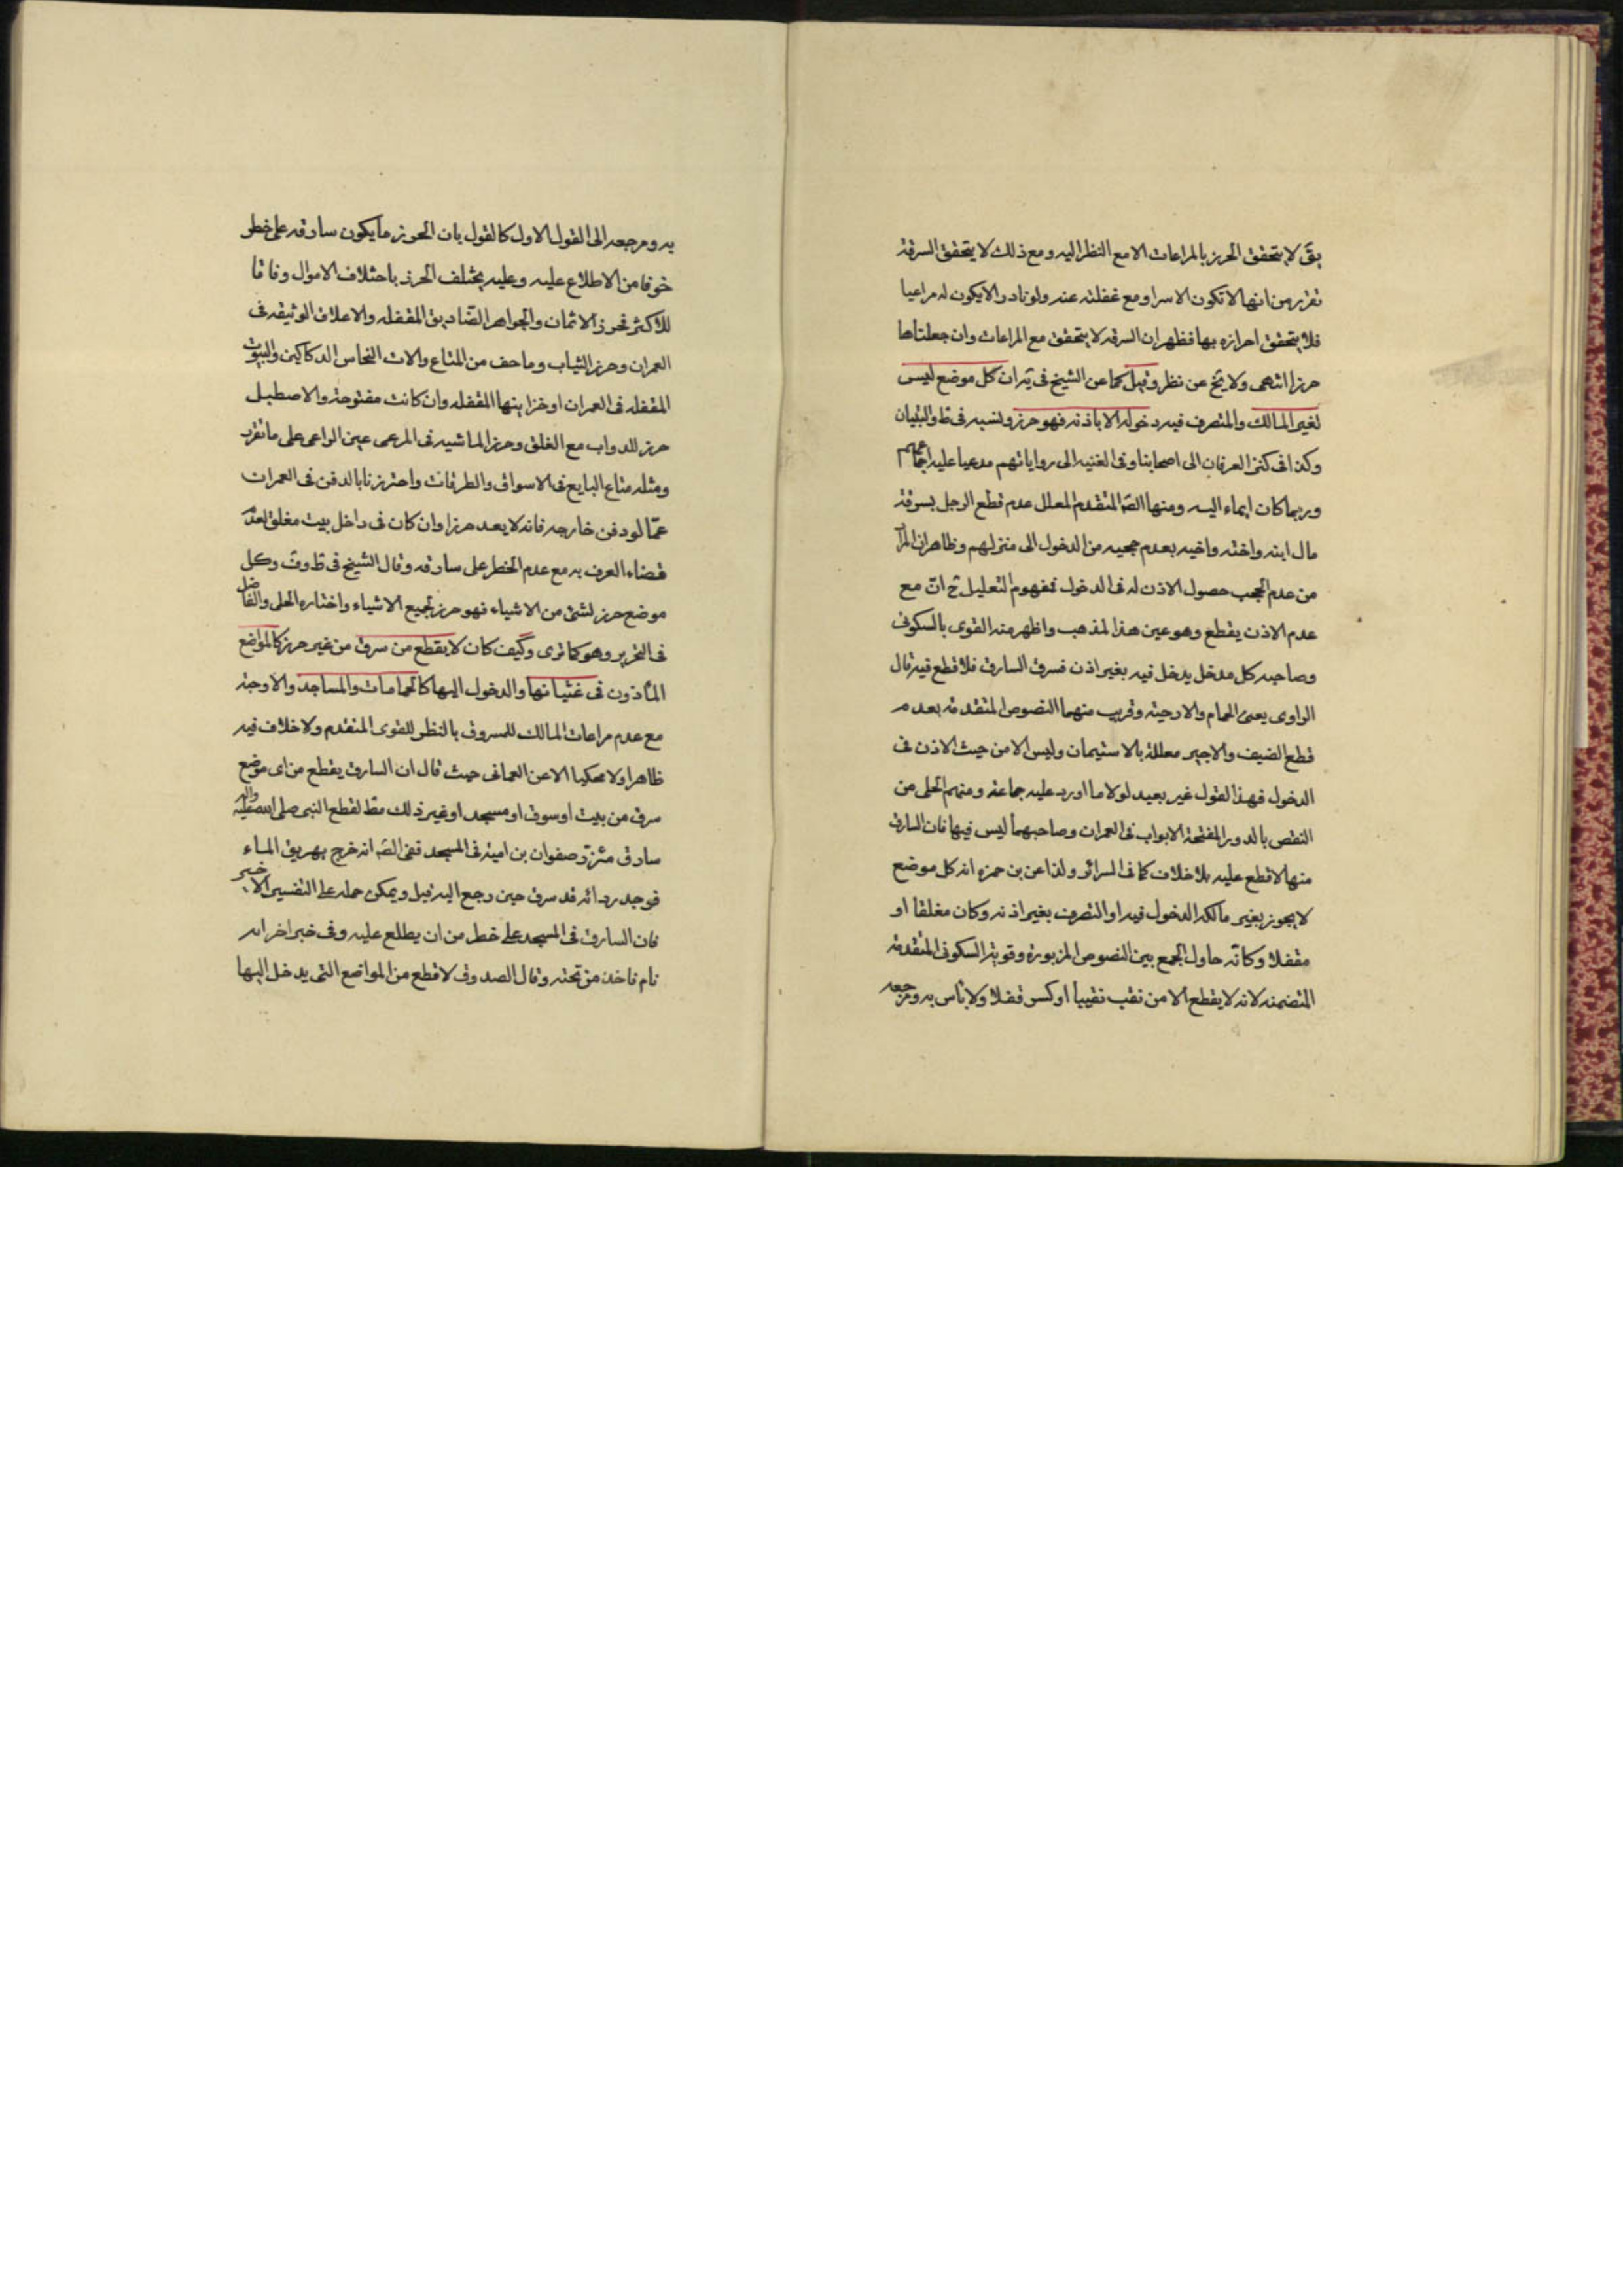 يق لا يتحقق الحرز بالمراعات الا مع النظر اليه ومع ذلك لا يتحقق السرقة
تقرر من انها لا تكون الا سرا ومع غفلته عنه ولو نادرا لا يكون له مراعيا
فلا يتحقق احرازه بها فظهر ان السرقه لا يتحقق مع المراعات وان جعلناها
حرزا انتهى ولا يخ عن نظر وقيل كما عن الشيخ في يه ان كل موضع ليس
لغير المالك والمتصرف فيه دخوله الا باذنه فهو حرز ونسبه في ط والتبيان
وكذا في كنز العرفان الى اصحابنا وفي الغنيه الى رواياتهم مدعيا عليه اجماعهم
وربما كان ايماء اليه ومنها الصّ المتقدم المعلل عدم قطع الرجل بسرقة
مال ابنه واخته واخيه بعدم حجبه من الدخول الى منزلهم وظاهر ان المرا
من عدم الحجب حصول الاذن له في الدخول فمفهوم التعليل ح انّ مع
عدم الاذن يقطع وهو عين هذا المذهب واظهر منه القوى بالسكونى
وصاحبه كل مدخل يدخل فيه بغير اذن فسرق السارق فلا قطع فيه قال
الراوى يعنى الحمام والارحية وقريب منهما النصوص المتقدمة بعدم
قطع الضيف والاجير معللة بالاستيمان وليس الا من حيث الاذن فى
الدخول فهذا القول غير بعيد لولا ما اورد عليه جماعة ومنهم الحلى من
النقص بالدور المفتحة الابواب فى العمران وصاحبها ليس فيها فان السارق
منها لا قطع عليه بلا خلاف كما فى السرائر ولذا عن بن حمزه انه كل موضع
لا يجوز بغير مالكه الدخول فيه او التصرف بغير اذنه وكان مغلقا او
مقفلا وكانّه حاول الجمع بين النصوص المزبورة وقوية السكونى المتقدمة
المتضمنه لانه لا يقطع الا من نقب نقبا او كسر قفلا ولا باس به ومرجعه
به ومرجعه الى القول الاول كالقول بان الحرز ما يكون سارقه على خطر
خوفا من الاطلاع عليه وعليه يختلف الحرز باختلاف الاموال وفاقا
للاكثر فحرز الاثمان والجواهر الصّناديق المقفله والاغلاق الوثيقه فى
العمران وحرز الثياب وما خف من المتاع والات النحاس الدكاكين والبيوت
المقفله فى العمران او خزاينها المقفله وان كانت مفتوحة والاصطبل
حرز للدواب مع الغلق وحرز الماشيه فى المرعى عين الراعى على ما تقرر
ومثله متاع البايع فى الاسواق والطرقات واحترزنا بالدفن فى العمران
عمّا لو دفن خارجه فانه لا يعد حرزا وان كان فى داخل بيت مغلق لعدم
قضاء العرف به مع عدم الخطر على سارقه وقال الشيخ فى ط وف وكل
موضع حرز لشئ من الاشياء فهو حرز لجميع الاشياء واختاره الحلى والفاضل
فى التحرير وهو كما ترى وكيف كان لا يقطع من سرق من غير حرز كالمواضع
المأذون فى غشيانها والدخول اليها كالحمامات والمساجد والارحية
مع عدم مراعات المالك للمسروق بالنظر للقوى المتقدم ولا خلاف فيه
ظاهرا ولا محكيا الا عن العمانى حيث قال ان السارق يقطع من اى موضع
سرق من بيت او سوق او مسجد او غير ذلك مط لقطع النبى صلى الله عليه واله
سارق مئزر صفوان بن امية فى المسجد ففى الصّ انه خرج يهريق الماء
فوجد ردائه قد سرق حين رجع اليه قيل ويمكن حمله على التفسير الاخير
فان السارق فى المسجد على خطر من ان يطلع عليه وفى خبر اخر انه
نام فاخذ من تحته وقال الصدوق لا قطع من المواضع التى يدخل اليها